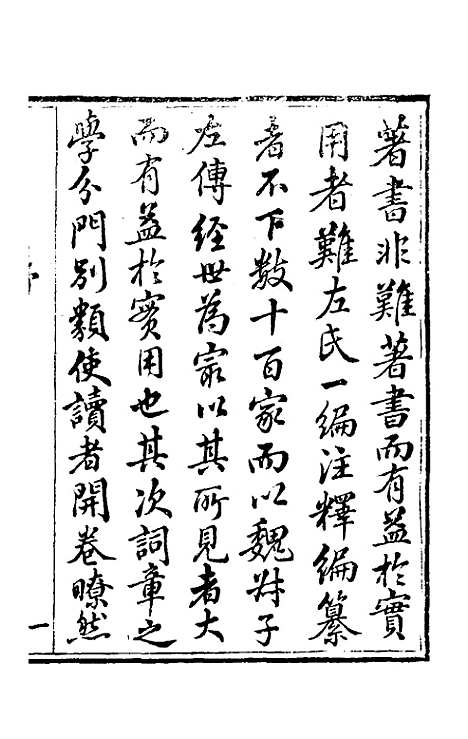 著書非難著書而有益於實
用者難左氏一編注釋編纂
者不下數十百家而以魏尗子
左傳經世為最以其所見者大
而有益於實用也其次詞章之
學分門別類使讀者開卷瞭然
一